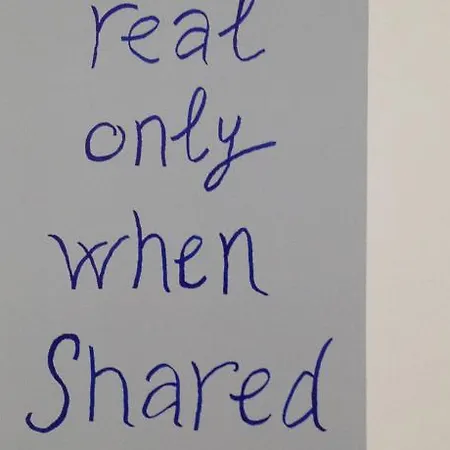 real
only
when
Shared